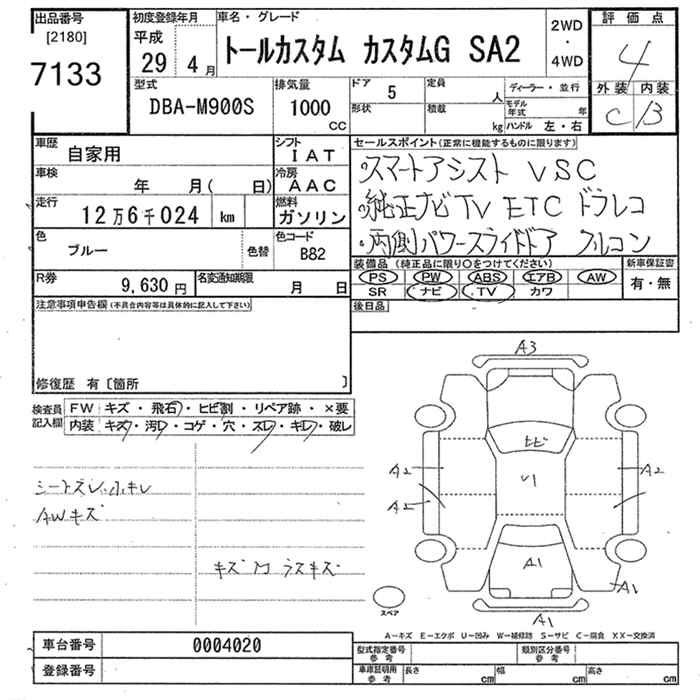 出品番号
[2180]
7133
初度登録年月
平成
29 4月
車名・グレード
トールカスタム カスタムG SA2
2WD
・
4WD
評価点
4
外装 内装
C B
型式
DBA-M900S
排気量
1000
CC
ドア
5
形状
定員
人
積載
kg
ディーラー・並行
モデル年式 年
ハンドル 左・右
車歴
自家用
シフト
IAT
車検
年 月( 日)
冷房
AAC
走行
12万6千024 km
燃料
ガソリン
色
ブルー
色替
色コード
B82
R券
9,630円
名変通知期限
月 日
セールスポイント(正常に機能するものに限ります)
・スマートアシスト VSC
・純正ナビTV ETC ドラレコ
・両側パワースライドドア フルコン
装備品(純正品に限り○をつけてください)
PS PW ABS エアB AW
SR ナビ TV カワ
新車保証書
有・無
後日品
注意事項申告欄(不具合内容等は具体的に記入して下さい)
修復歴 有〔箇所 〕
検査員記入欄
FW キズ・飛石・ヒビ割・リペア跡・×要
内装 キズ・汚レ・コゲ・穴・スレ・キレ・破レ
シートズレ.小キレ
AWキズ
キズ
A3
ヒビ
A2
A2
A2
U1
A1
A1
A1
スペア
A-キズ E-エクボ U-凹み W-補修跡 S-サビ C-腐食 XX-交換済
車台番号
0004020
登録番号
型式指定番号
参考
類別区分番号
参考
車庫証明用
参考
長さ cm
幅 cm
高さ cm